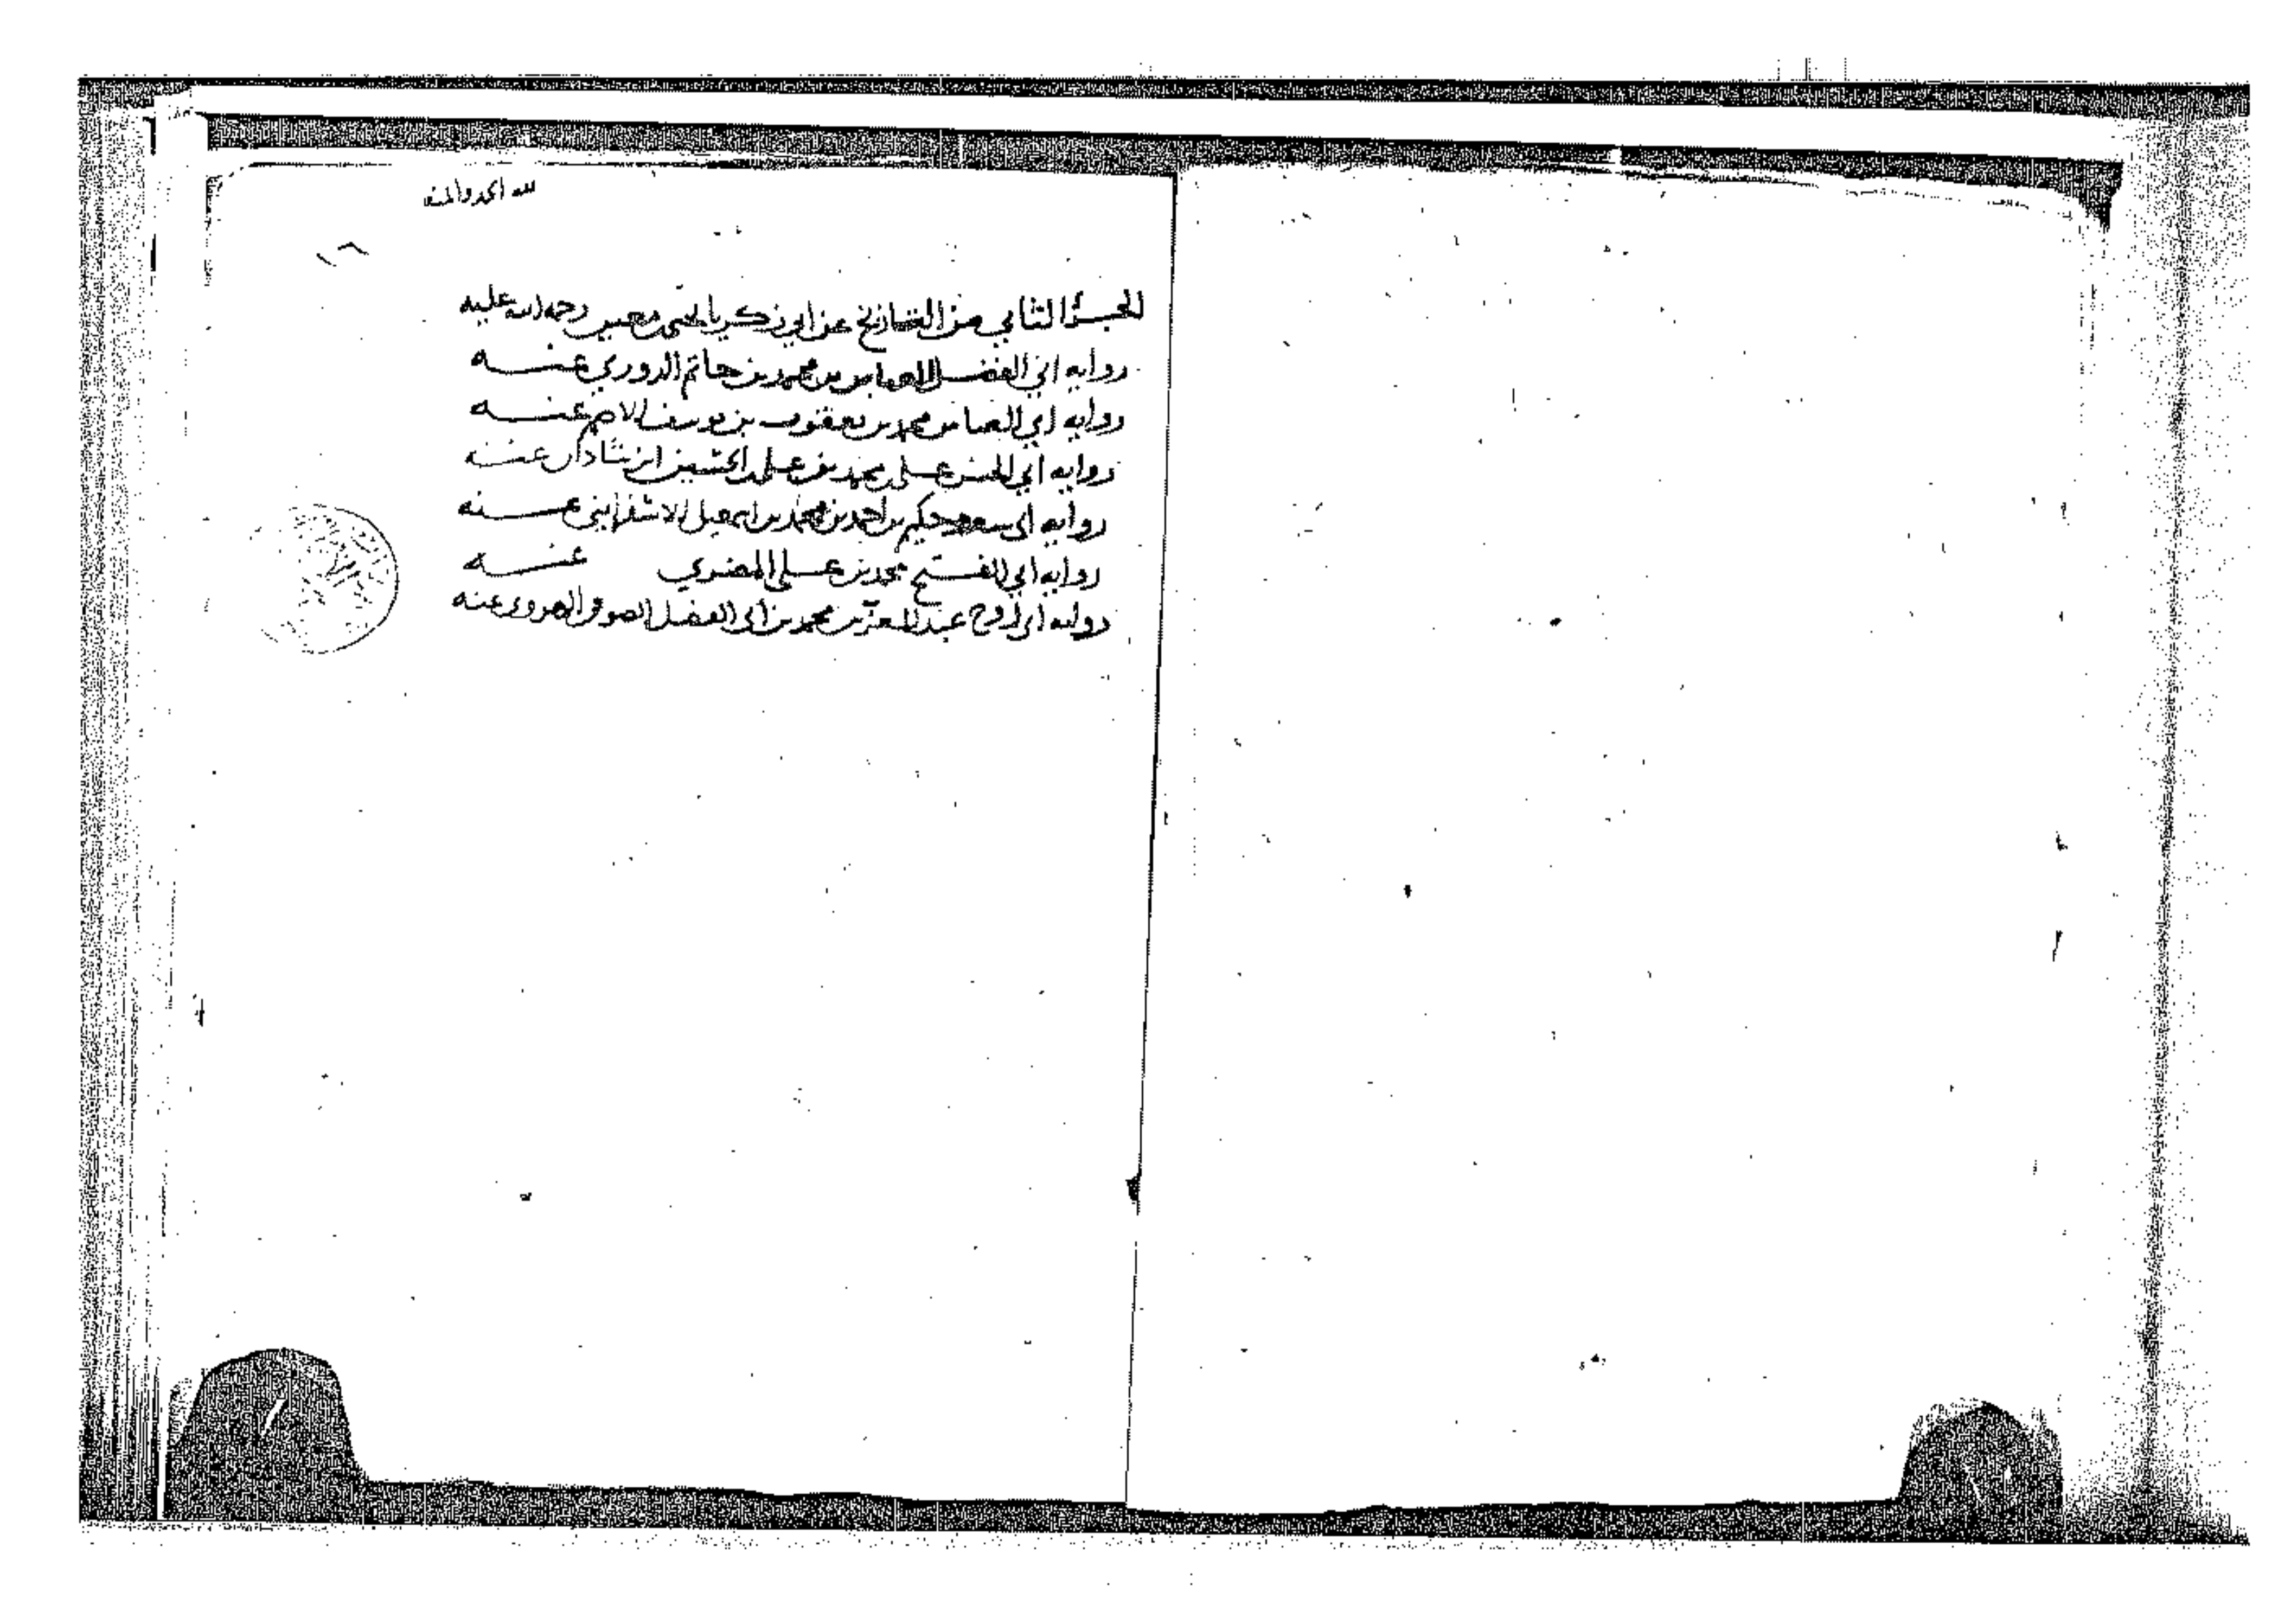 لله الحمد والمنه
الجزؤ الثاني من التاريخ عن ابي زكريا يحيى بن معين رحمه الله عليه
روايه ابي الفضل العباس بن محمد بن حاتم الدوري عنه
روايه ابي العباس محمد بن يعقوب بن يوسف الاصم عنه
روايه ابي الحسن علي بن محمد بن علي بن الحسين ابن شاذان عنه
روايه ابي سعد حكيم بن احمد بن محمد بن اسمعيل الاسفرايني عنه
روايه ابي الفتح محمد بن علي المضري عنه
روايه ابي روح عبد المعز بن محمد بن ابي الفضل الصوفي الهروي عنه